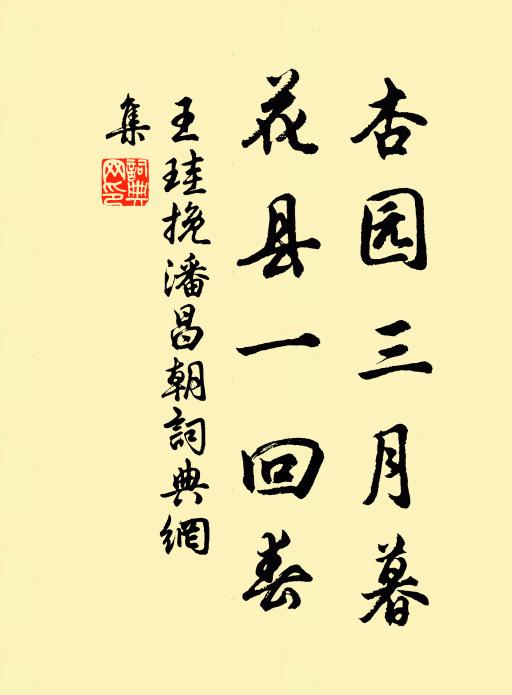 杏园三月暮
花县一回春
王珪挽潘昌朝詞典網
集
詞典
网印